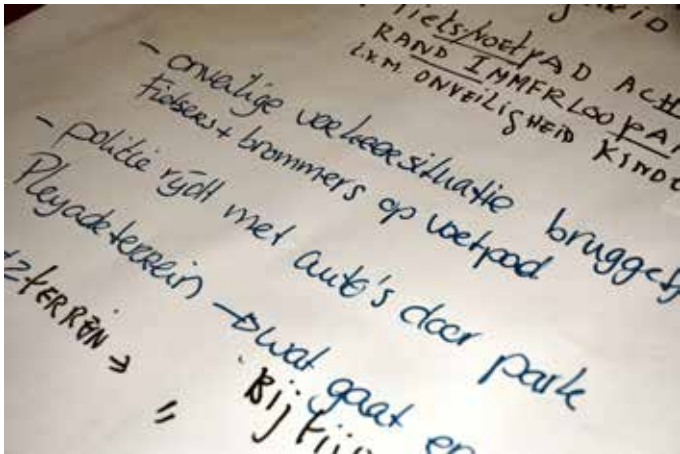 Fiets/voetPAD
RAND IMMERLOOPA
i.v.m. ONVEILIGHEID KIND
- onveilige verkeerssituatie brugget
Fietsers + brommers op voetpad
- politie rijdt met auto's door park
Pleyadeterrein → wat gaat er
TERREIN → " Bij